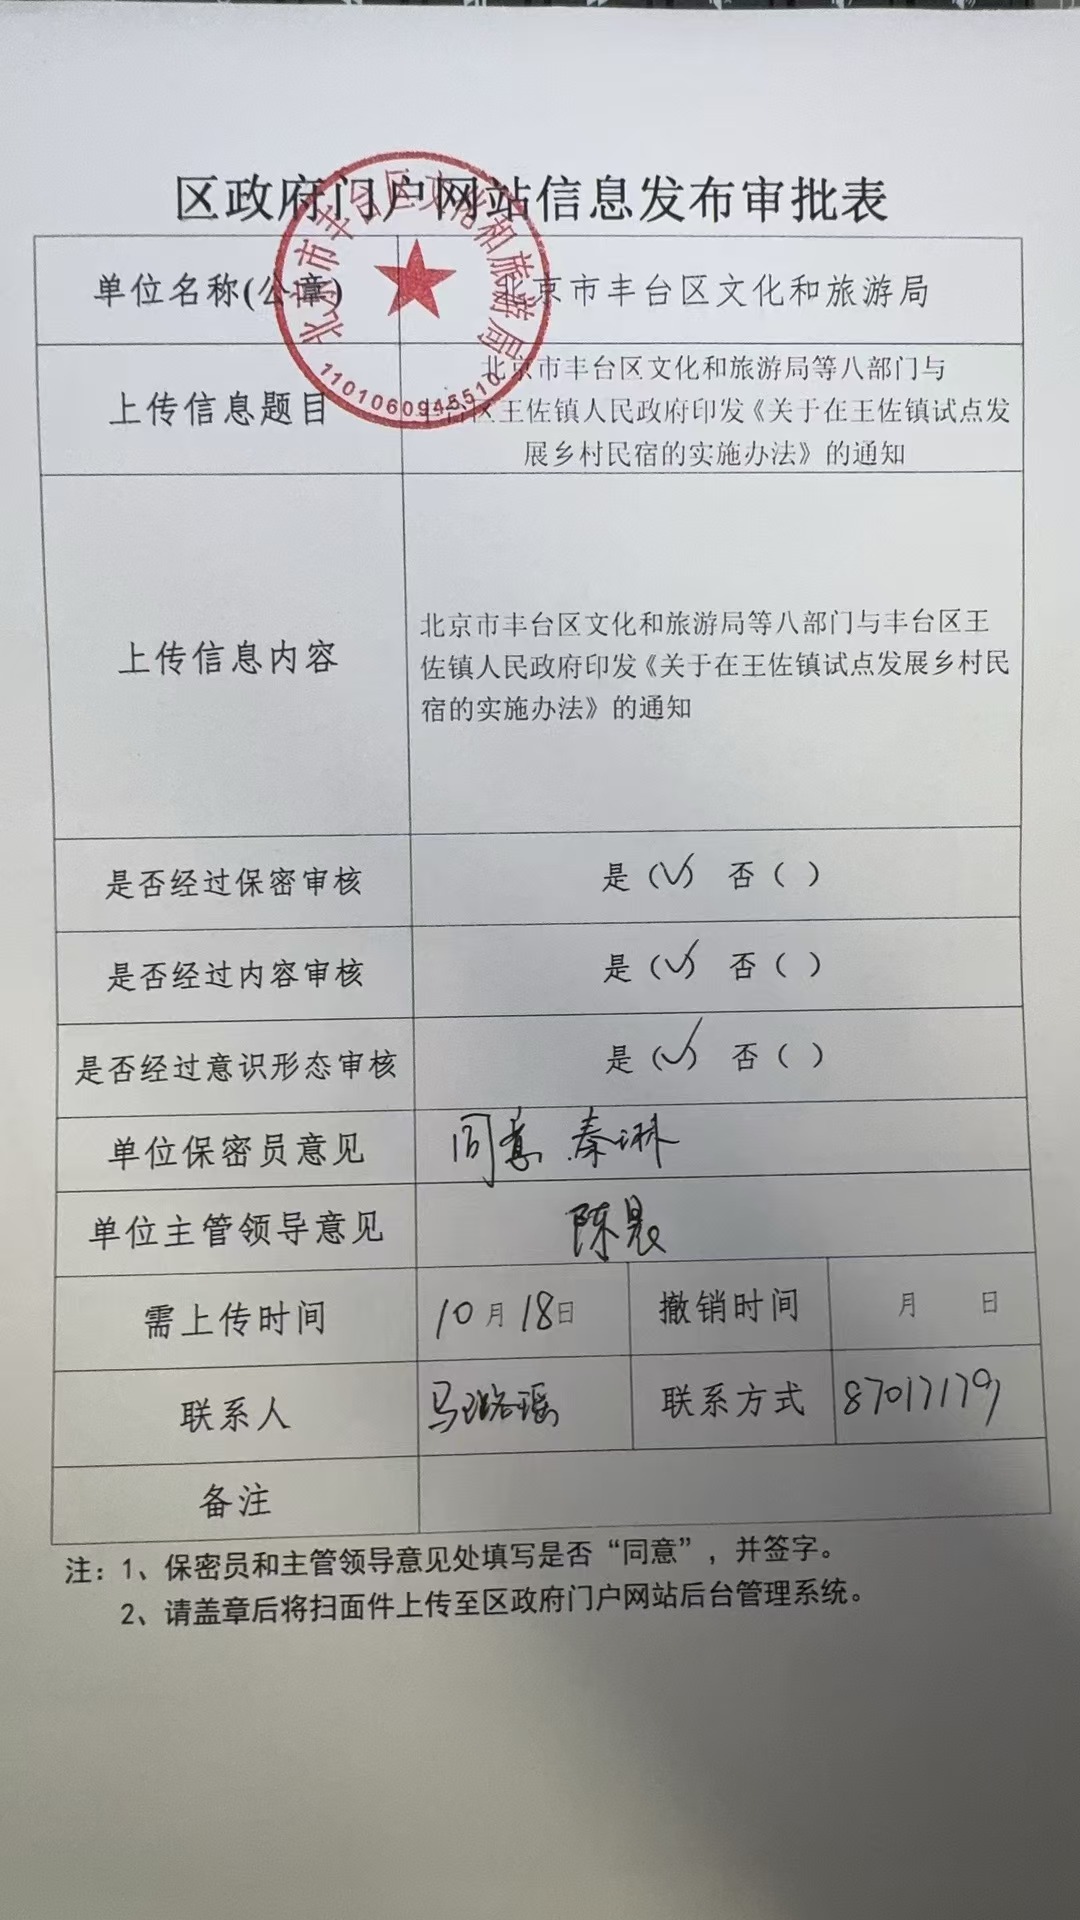 区政府门户网站信息发布审批表
单位名称(公章) 北京市丰台区文化和旅游局
北京市丰台区文化和旅游局
1101060945510
上传信息题目
北京市丰台区文化和旅游局等八部门与
丰台区王佐镇人民政府印发《关于在王佐镇试点发
展乡村民宿的实施办法》的通知
上传信息内容
北京市丰台区文化和旅游局等八部门与丰台区王
佐镇人民政府印发《关于在王佐镇试点发展乡村民
宿的实施办法》的通知
是否经过保密审核 是(√) 否( )
是否经过内容审核 是(√) 否( )
是否经过意识形态审核 是(√) 否( )
单位保密员意见 同意 秦琳
单位主管领导意见 陈晟
需上传时间 10月18日 撤销时间 月 日
联系人 马璐瑶 联系方式 87017179
备注
注：1、保密员和主管领导意见处填写是否“同意”，并签字。
2、请盖章后将扫面件上传至区政府门户网站后台管理系统。